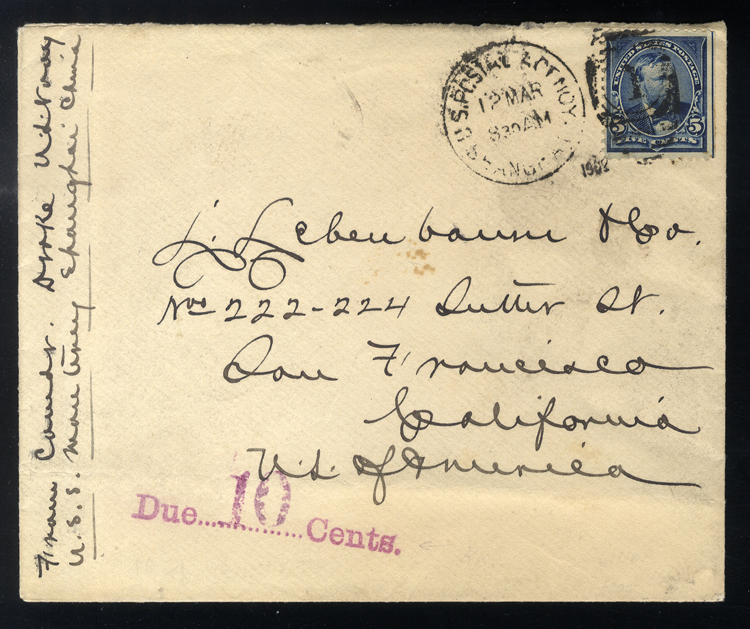 U.S. POSTAL AGENCY.
12 MAR
830AM
SHANGHAI
1902
UNITED STATES POSTAGE
5 5
FIVE CENTS.
L. Lebenbaum & Co.
Nos 222-224 Sutter St.
San Francisco
California
U.S. of America
Due 10 Cents.
From Comdr. Drake U.S. Navy
U.S.S. Monterey Shanghai China